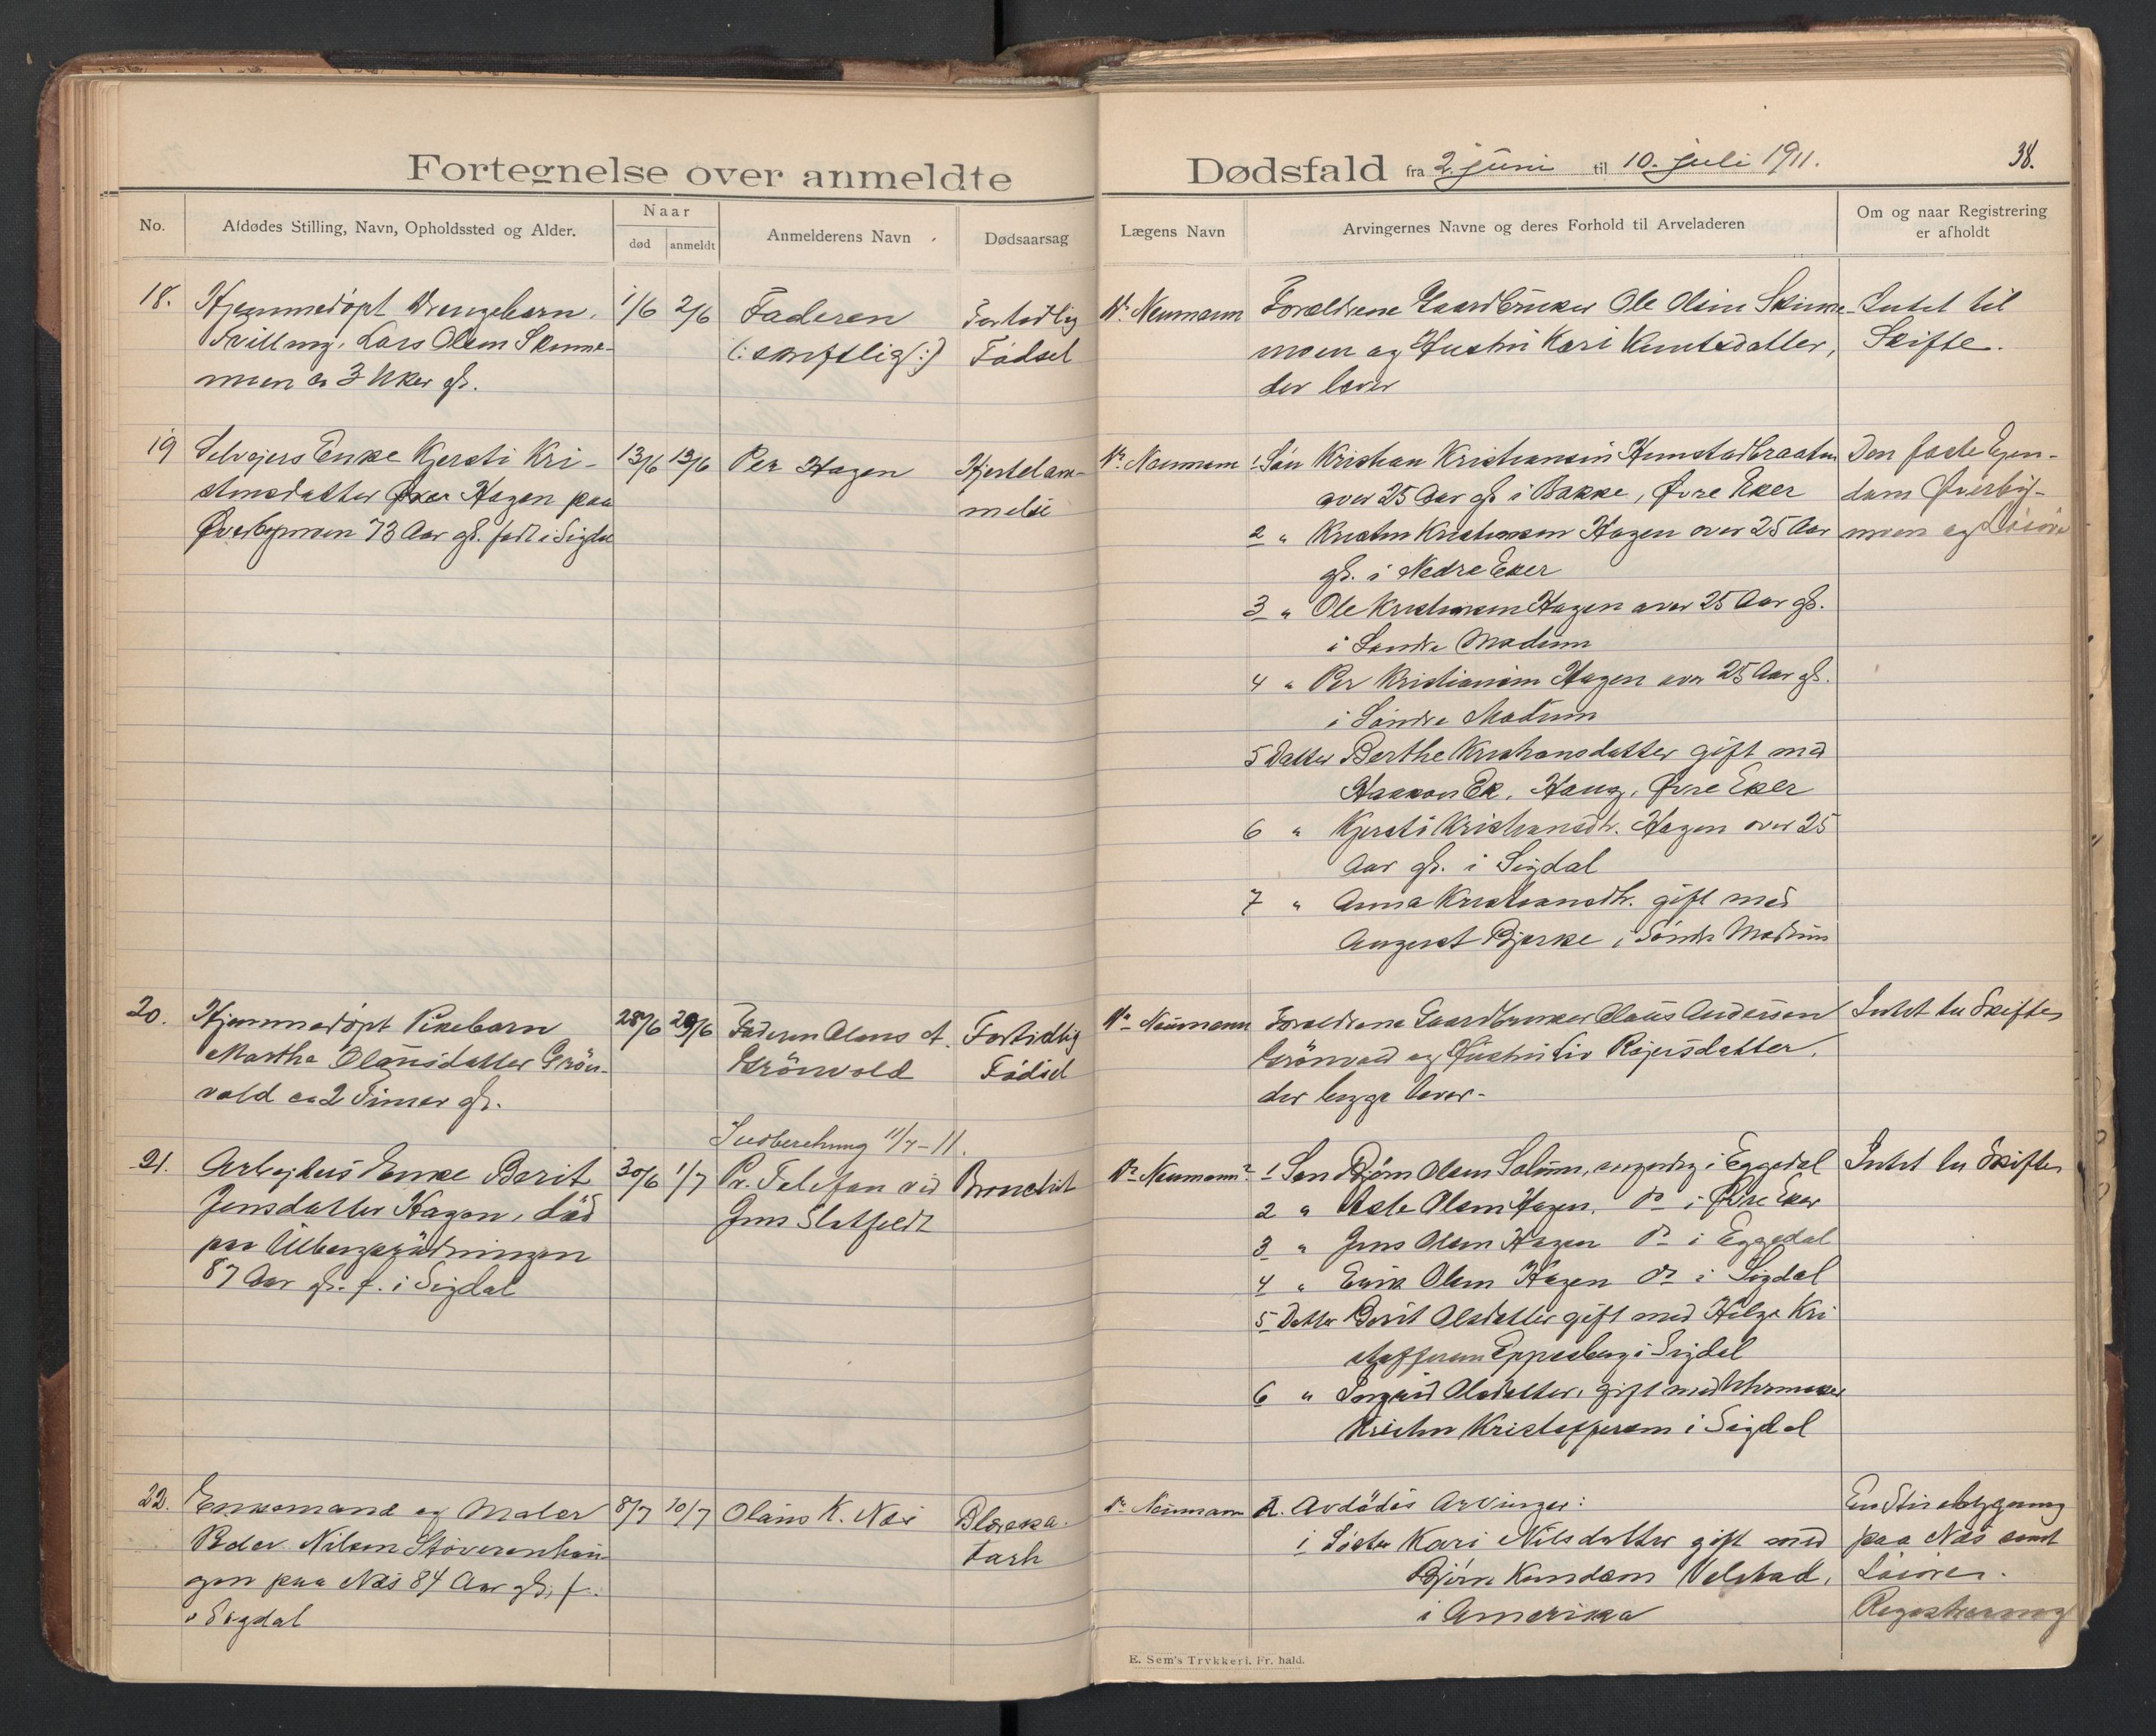 Fortegnelse over anmeldte
Dødsfald fra 2. juni til 10. juli 1911.
38.
No.
Afdødes Stilling, Navn, Opholdssted og Alder.
Naar
død
anmeldt
Anmelderens Navn
Dødsaarsag
Lægens Navn
Arvingernes Navne og deres Forhold til Arveladeren
Om og naar Registrering
er afholdt
18.
Hjemmedöpt Drengebarn,
Tvilling, Lars Olsen Skinne-
moen ca 3 Uker gl.
1/6
2/6
Faderen
(: skriftlig :)
Fortidlig
Födsel
Dr. Neumann
Forældrene Gaardbruker Ole Olsen Skinne-
moen og Hustru Kari Knutsdatter,
der lever
Intet til
Skifte.
19
Selveiers Enke Kjersti Kri-
stensdatter Hagen paa
Överbymoen 73 Aar gl. födt i Sigdal
13/6
13/6
Per Hagen
Hjertelam-
melse
Dr. Neumann
1 Sön Kristian Kristiansen Hemstadbraaten
over 25 Aar gl i Bakke, Øvre Eker
2 " Kristen Kristiansen Hagen over 25 Aar
gl. i Nedre Eker
3 " Ole Kristiansen Hagen over 25 Aar gl.
i Söndre Modum
4 " Per Kristiansen Hagen over 25 Aar gl.
i Söndre Modum
5 Datter Berthe Kristiansdatter gift med
Haakon Ek, Haug, Øvre Eker
6 " Kjersti Kristiansdtr. Hagen over 25
Aar gl. i Sigdal
7 " Anna Kristiansdtr. gift med
August Bjerke i Söndre Modum
Den faste Eien-
dom Överby-
moen og Lösöre
20.
Hjemmedöpt Pikebarn
Martha Olausdatter Grön-
vold ca 2 Timer gl.
28/6
29/6
Faderen Olaus A.
Grönvold
Fortidlig
Födsel
Dr. Neumann
Forældrene Gaardbruker Olaus Andersen
Grönvold og Hustru Liv Reiersdatter,
der begge lever.
Intet til Skifte
Indberetning 11/7-11.
21.
Arbeiders Enke Berit
Jensdatter Hagen, död
paa
87 Aar gl. f. i Sigdal
30/6
1/7
Pr. Telefon ved
Jens Slatfjeldt
Bronchit
Dr. Neumann?
1 Sön Björn Olsen Solum, myndig i Eggedal
2 " Asle Olsen Hagen, do i Øvre Eker
3 " Jens Olsen Hagen do i Eggedal
4 " Eirik Olsen Hagen do i Sigdal
5 Datter Berit Olsdatter gift med Helge Kri
stoffersen Eppesberg i Sigdal
6 " Ingrid Olsdatter, gift med Uhrmaker
Kristen Kristoffersen i Sigdal
Intet til Skifte
22.
Enkemand og Maler
Peder Nilsen Stöverenhau-
gen paa Næs 84 Aar gl, f.
i Sigdal
8/7
10/7
Olaus K. Næs
Blæreka-
tarh
Dr. Neumann
A. Avdödes Arvinger:
1 Söster Kari Nilsdatter gift med
Björn Knudsen Velstad,
i Amerika
En Stuebygning
paa Næs samt
Lösöre.
Registrering
E. Sem's Trykkeri. Fr. hald.